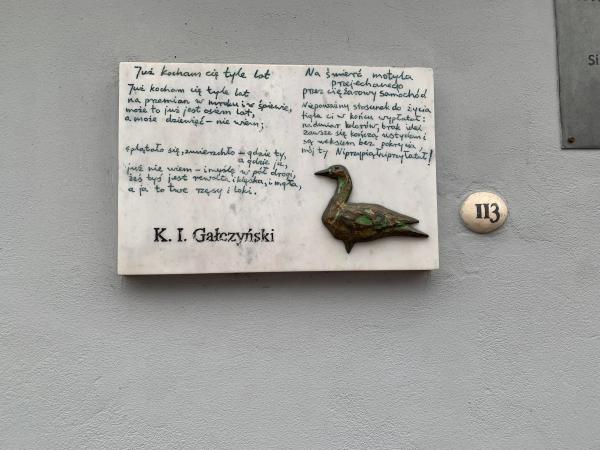 Już kocham cię tyle lat
Już kocham cię tyle lat
na przemian w mroku i w śpiewie,
może to już jest osiem lat,
a może dziewięć – nie wiem;
splątało się, zmierzchło – gdzie ty,
a gdzie ja,
już nie wiem – i myślę w pół drogi,
żeś ty jest rewolta i klęska, i mgła,
a ja to twe rzęsy i loki.
Na śmierć motyla
przejechanego
przez ciężarowy samochód
Niepoważny stosunek do życia
figla ci w końcu wypłatał:
nadmiar kolorów, brak idei
zawsze się kończą wstydem i
są wekslem bez pokrycia
mój ty Niprzypiąłniprzyłatał!
K. I. Gałczyński
113
Si